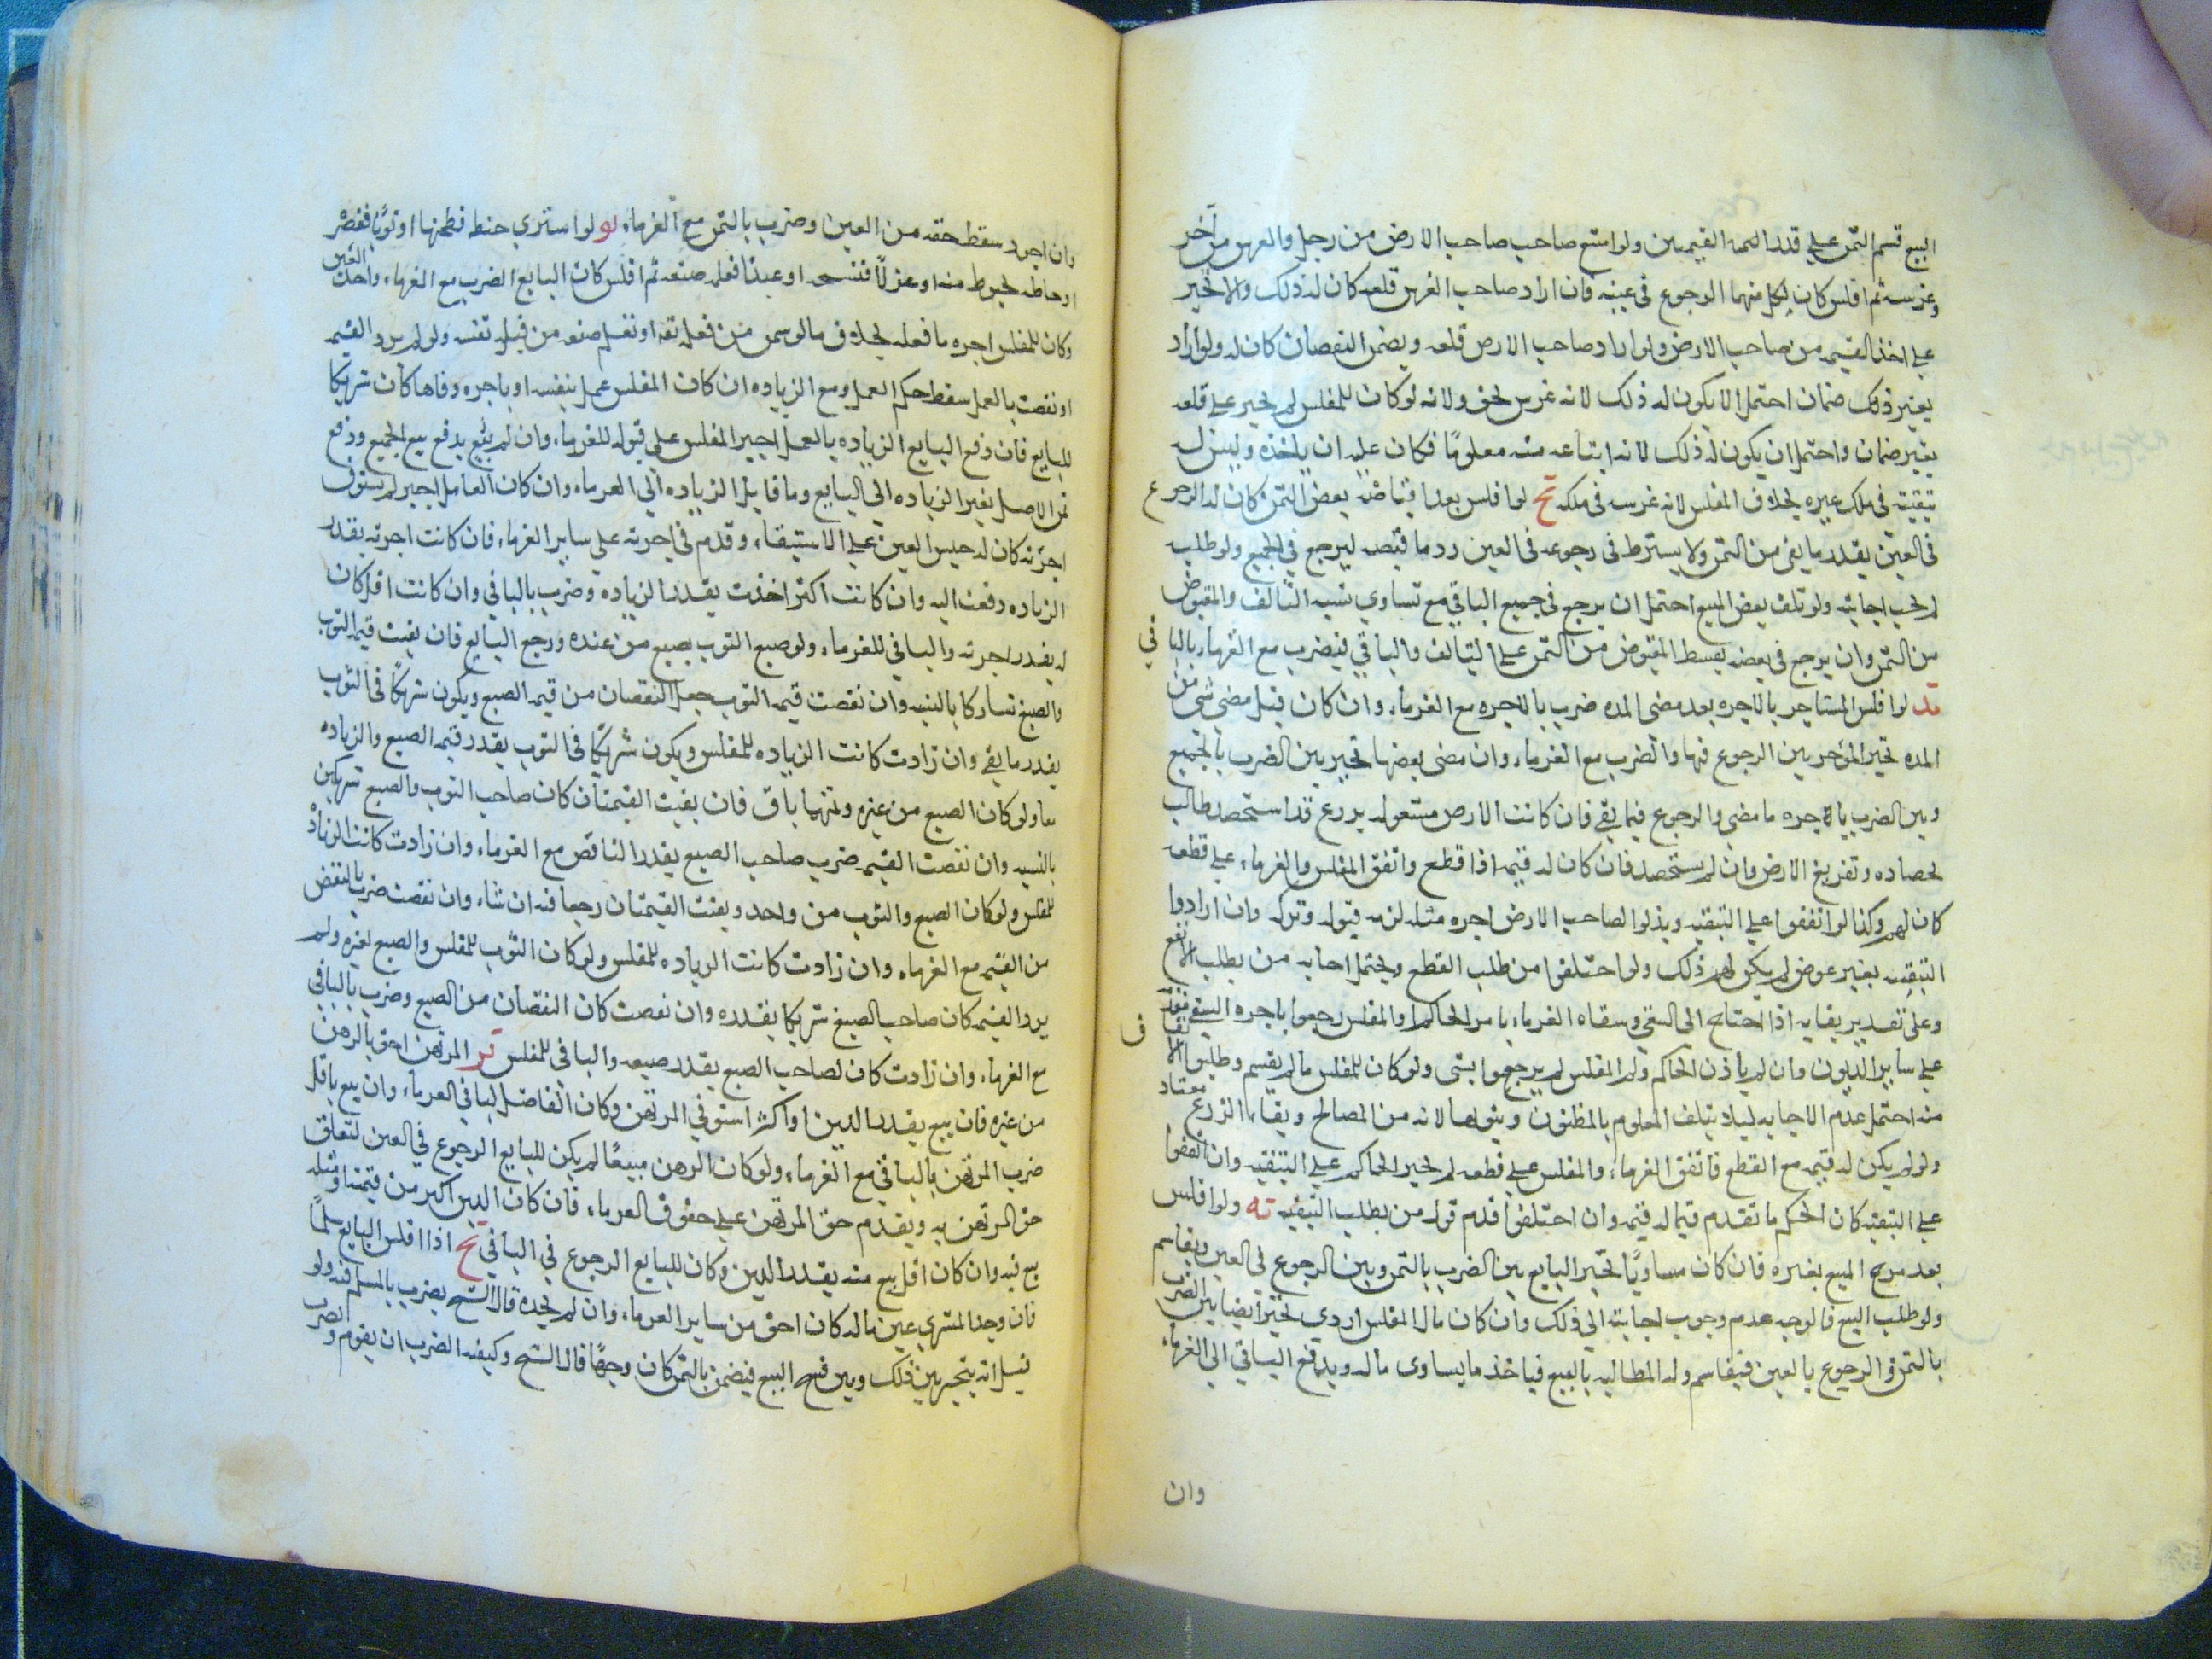 البيع قسم الثمن على قدر القيمتين ولو امتنع صاحب الارض من رجل والغرس من آخر
وغرسه ثم افلس كان لكل منهما الرجوع في عينه فان اراد صاحب الغرس قلعه كان له ذلك والا تخير
على اخذ القيمة من صاحب الارض ولو اراد صاحب الارض قلعه ويضمن النقصان كان له ولو اراد
بغير ذلك ضمان احتمل الا يكون له ذلك لانه غرس بحق ولانه لو كان للمفلس لم يجبر على قلعه
بغير ضمان واحتمل ان يكون له ذلك لانه ابتاعه منه مقلوعا فكان عليه ان ياخذه وليس له
تبقيته في ملك غيره بخلاف المفلس لانه غرسه في ملكه تح لو افلس بعد اقباضه بعض الثمن كان له الرجوع
في العين بقدر ما بقي من الثمن ولا يشترط في رجوعه في العين رد ما قبضه ليرجع في الجميع ولو طلب
لم تجب اجابته ولو تلف بعض المبيع احتمل ان يرجع في جميع الباقي مع تساوي نسبة التالف والمقبوض
من الثمن وان يرجع في بعضه بقسط المقبوض من الثمن على التالف والباقي فيضرب مع الغرماء بالباقي
قد لو افلس المستاجر بالاجره بعد مضي المده ضرب بالاجره مع الغرماء وان كان قبل مضي شي من
المده تخير المؤجر بين الرجوع فيها والضرب مع الغرماء وان مضى بعضها تخير بين الضرب بالجميع
وبين الضرب بالاجره ما مضى والرجوع فيما بقي فان كانت الارض مشغوله بزرع قد استحصد طالب
بحصاده وتفريغ الارض وان لم يستحصد فان كان له قيمه اذا قطع واتفق المفلس والغرماء على قطعه
كان لهم وكذا لو اتفقوا على التبقيه وبذلوا لصاحب الارض اجره مثله لزمه قبوله وتركه وان ارادوا
التبقيه بغير عوض لم يكن لهم ذلك ولو اختلفوا من طلب القطع ويحتمل اجابه من يطلب الانفع
وعلى تقدير بقايه اذا احتاج الى السقي وسقاه الغرماء بامر الحاكم او المفلس رجعوا باجره السقي
على ساير الديون وان لم ياذن الحاكم ولا المفلس لم يرجعوا بشي ولو كان للمفلس مال لم يقسم وطلبوا
منه احتمل عدم الاجابه ليلا يتلف المعلوم بالمظنون وثبوتها لانه من المصالح وبقاء الزرع معتاد
ولو لم يكن له قيمه مع القطع فاتفق الغرماء والمفلس على قطعه لم يجبر الحاكم على التبقيه وان اتفقوا
على التبقيه كان الحكم ما تقدم فيما له قيمه وان اختلفوا قدم قول من يطلب التبقيه قه ولو افلس
بعد مزج المبيع بغيره فان كان مساويا تخير البايع بين الضرب بالثمن وبين الرجوع في العين ويقاسم
ولو طلب البيع فالوجه عدم وجوب اجابته الى ذلك وان كان مال المفلس اردى تخير ايضا بين الضرب
بالثمن والرجوع بالعين فيقاسم وله المطالبه بالبيع فياخذ ما يساوى ماله ويدفع الباقي الى الغرماء
وان
وان اجود سقط حقه من العين وضرب بالثمن مع الغرماء قو لو اشترى حنطه فطحنها او ثوبا فقصره
او خاطه بخيوط منه او غزلا فنسجه او عبدا فعلمه صنعه ثم افلس كان البايع الضرب مع الغرماء واخذ العين
وكان للمفلس اجره ما فعله بخلاف ما لو سمن من فعله تعالى او تعلم صنعه من قبل نفسه ولو لم تزد القيمه
او نقصت بالعمل سقط حكم العمل ومع الزياده ان كان المفلس عمل بنفسه او باجره وفاها كان شريكا
للبايع فان دفع البايع الزياده بالعمل اجبر المفلس على قبوله للغرماء وان لم يدفع بيع الجميع ودفع
ثمن الاصل بغير الزياده الى البايع وما قابل الزياده الى الغرماء وان كان العامل اجير لم يستوف
اجرته كان له حبس العين على الاستيفاء وقدم في اجرته على ساير الغرماء فان كانت اجرته بقدر
الزياده دفعت اليه وان كانت اكثر اخذت بقدر الزياده وضرب بالباقي وان كانت اقل كان
له بقدر اجرته والباقي للغرماء ولو صبغ الثوب بصبغ من عنده ورجع البايع فان بقيت قيمه الثوب
والصبغ تشاركا بالنسبه وان نقصت قيمه الثوب جعل النقصان من قيمه الصبغ ويكون شريكا في الثوب
بقدر ما بقي وان زادت كانت الزياده للمفلس ويكون شريكا في الثوب بقدر قيمه الصبغ والزياده
معا ولو كان الصبغ من غيره وثمنهما باق فان بقيت القيمتان كان صاحب الثوب والصبغ شريكين
بالنسبه وان نقصت القيمه ضرب صاحب الصبغ بقدر الناقص مع الغرماء وان زادت كانت الزياده
للمفلس ولو كان الصبغ والثوب من واحد وبقيت القيمتان رجع فيه ان شاء وان نقصت ضرب بالنقص
من القيمه مع الغرماء وان زادت كانت الزياده للمفلس ولو كان الثوب للمفلس والصبغ لغيره ولم
يزد القيمه كان صاحب الصبغ شريكا بقدره وان نقصت كان النقصان من الصبغ وضرب بالباقي
مع الغرماء وان زادت كان لصاحب الصبغ بقدر صبغه والباقي للمفلس قز المرتهن احق بالرهن
من غيره فان بيع بقدر الدين او اكثر استوفي المرتهن وكان الفاضل لباقي الغرماء وان بيع باقل
ضرب المرتهن بالباقي مع الغرماء ولو كان الرهن مبيعا لم يكن للبايع الرجوع في العين لتعلق
حق المرتهن به ويقدم حق المرتهن على حقوق الغرماء فان كان الدين اكبر من قيمتها وقبله
بيع فيه وان كان اقل بيع منه بقدر الدين وكان للبايع الرجوع في الباقي تح اذا افلس البايع سلما
فان وجد المشتري عين ماله كان احق من ساير الغرماء وان لم يجده قال الشيخ يضرب بالمسلم فيه ولو
قيل انه يتخير بين ذلك وبين فسخ البيع فيضمن بالثمن كان وجها قال الشيخ وكيفيه الضرب ان يقوم ويضرب